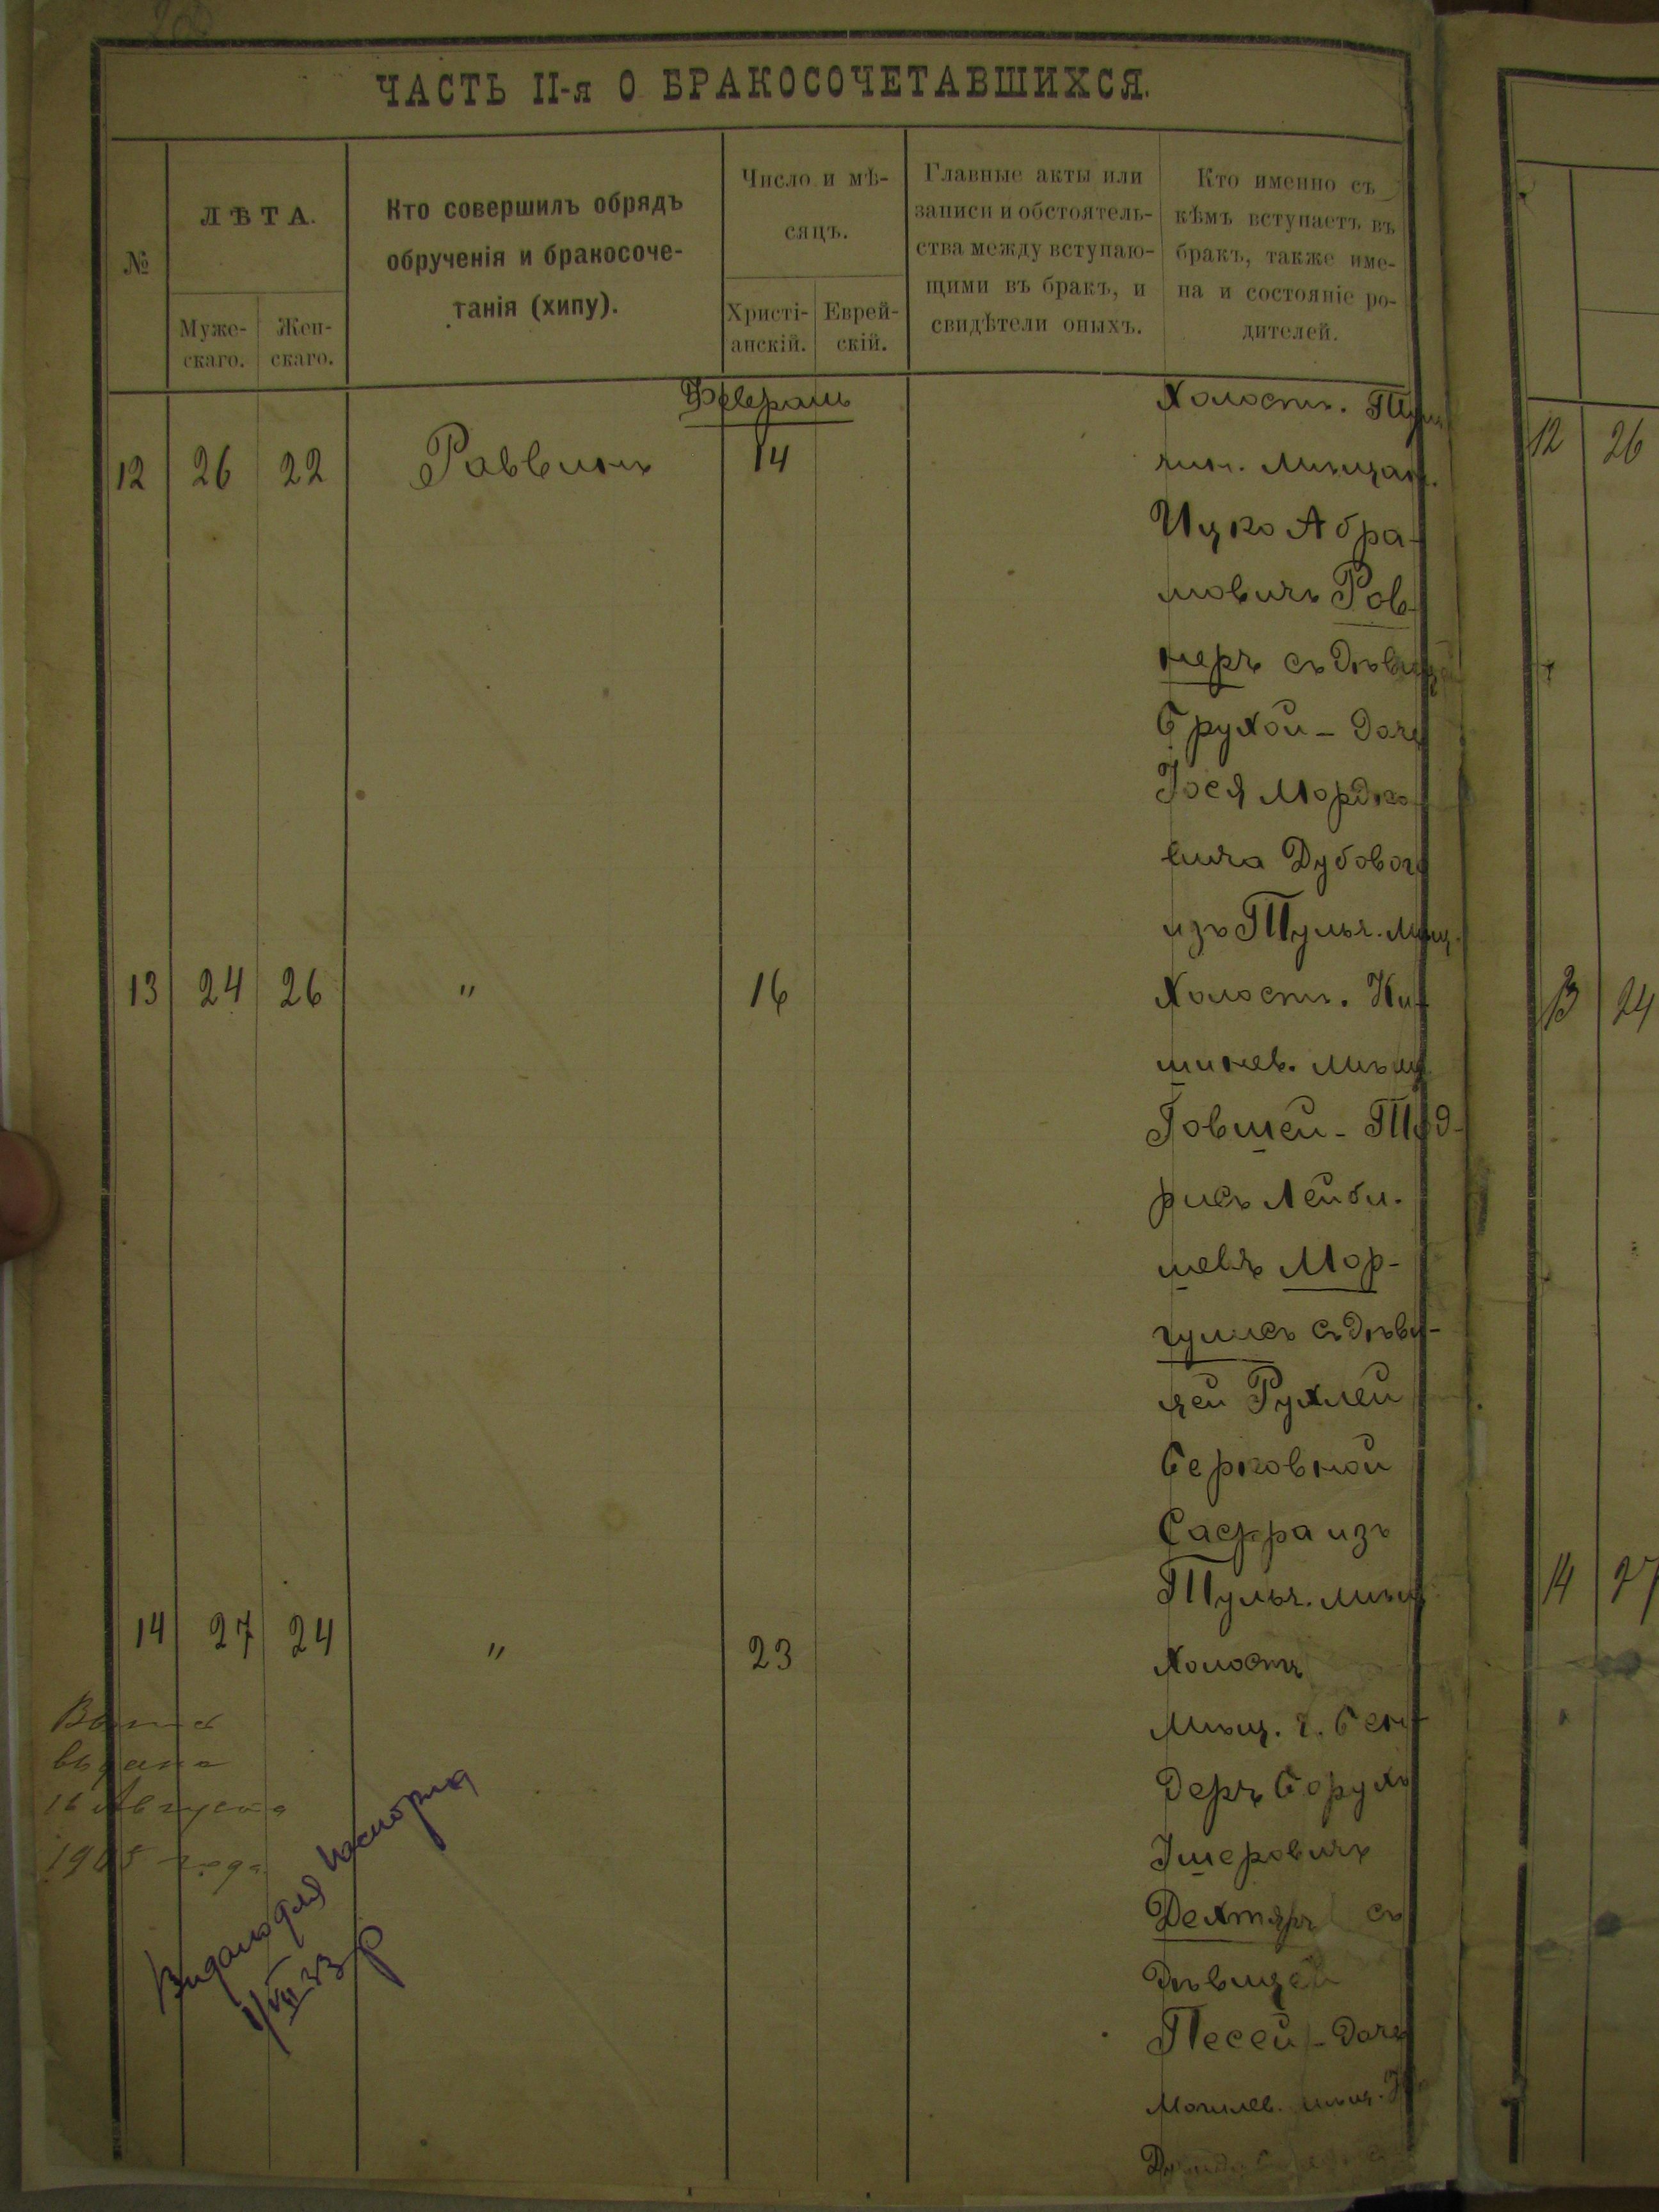 ЧАСТЬ II-я О БРАКОСОЧЕТАВШИХСЯ.
№
ЛѢТА.
Муже-
скаго.
Жен-
скаго.
Кто совершилъ обрядъ
обрученія и бракосоче-
танія (хипу).
Число и мѣ-
сяцъ.
Христі-
анскій.
Еврей-
скій.
Главные акты или
записи и обстоятель-
ства между вступаю-
щими въ бракъ, и
свидѣтели оныхъ.
Кто именно съ
кѣмъ вступаетъ въ
бракъ, также име-
на и состояніе ро-
дителей.
Февраль
12 26 22 Раввинъ 14
Холост.
чин. мѣщан.
Ицко Абра-
мовичъ Ров-
неръ съ дѣвицей
Брухой - дочь
Іося Мордко-
вича Дубового
изъ Тульч. мѣщ.
13 24 26 " 16
Холост. Ки-
шинев. мѣщ.
Говшей - Тод-
рисъ Лейби-
шевъ Мор-
гулисъ съ дѣви-
цей Рухлей
Берковной
Сафра изъ
Тульч. мѣщ.
14 27 24 " 23
Холостъ
мѣщ. г. Бен-
деръ Борухъ
Ушеровичъ
Дехтяръ съ
дѣвицей
Песей - дочь
Могилев. мѣщ.
выдана
16 Августа
1905 года
Видано для паспорта
1/VII 33 р
12 26
13 24
14 27